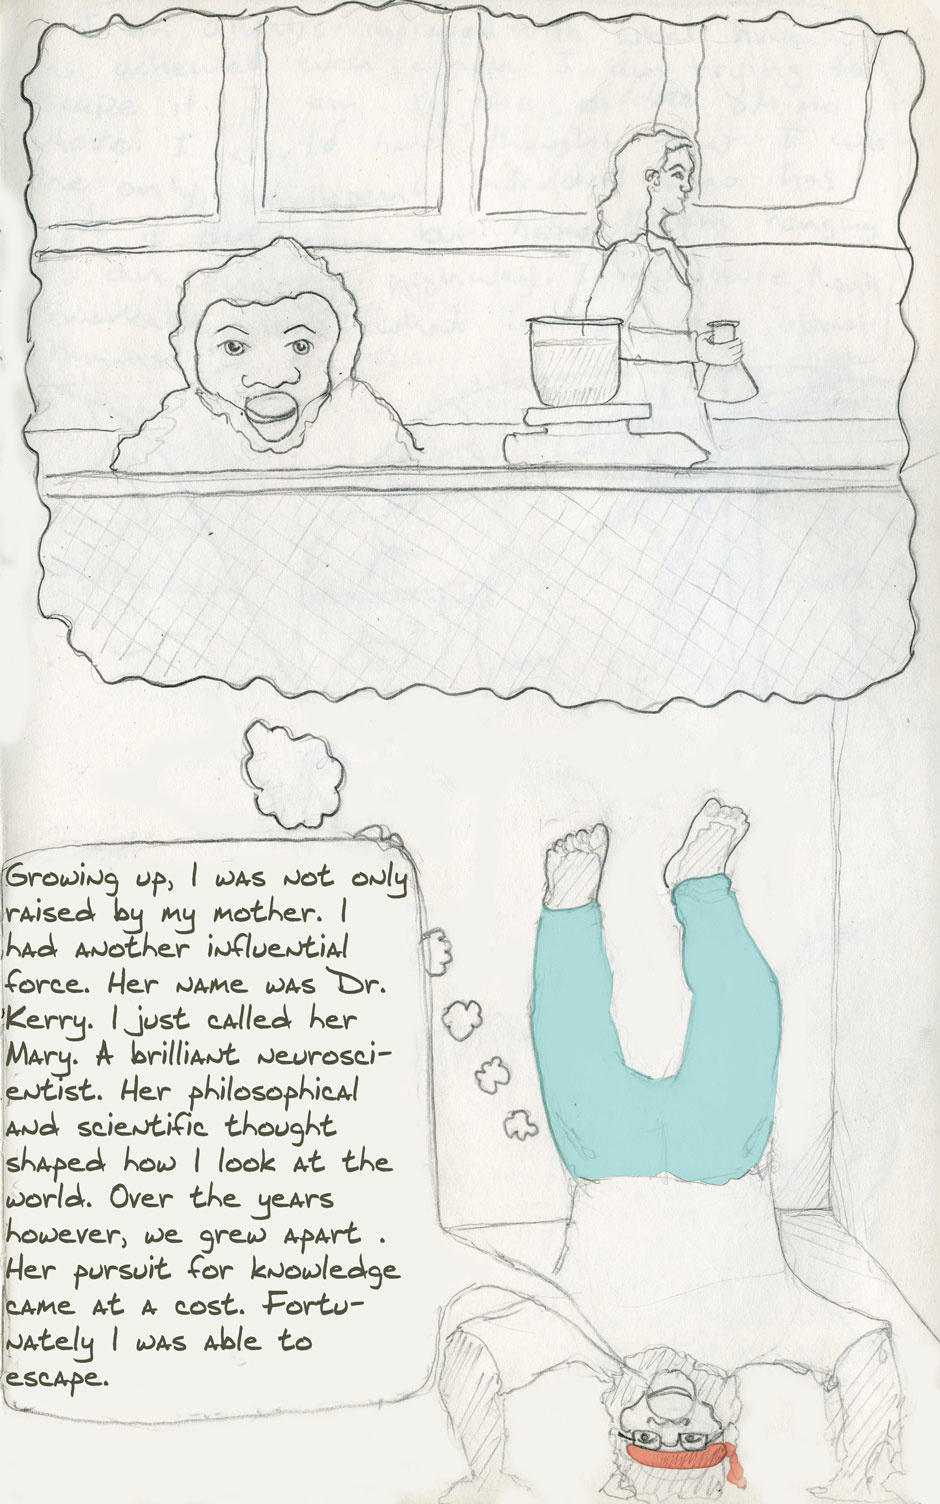 Growing up, I was not only
raised by my mother. I
had another influential
force. Her name was Dr.
Kerry. I just called her
Mary. A brilliant neurosci-
entist. Her philosophical
and scientific thought
shaped how I look at the
world. Over the years
however, we grew apart .
Her pursuit for knowledge
came at a cost. Fortu-
nately I was able to
escape.